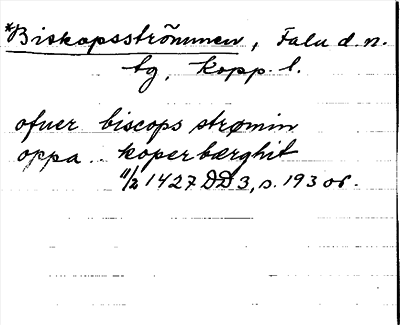 *Biskopsströmmen, Falu d. n.
tg, Kopp. l.
ofuer biscops strømin
oppa koperbærghit
11/2 1427 DD3, s. 193 or.